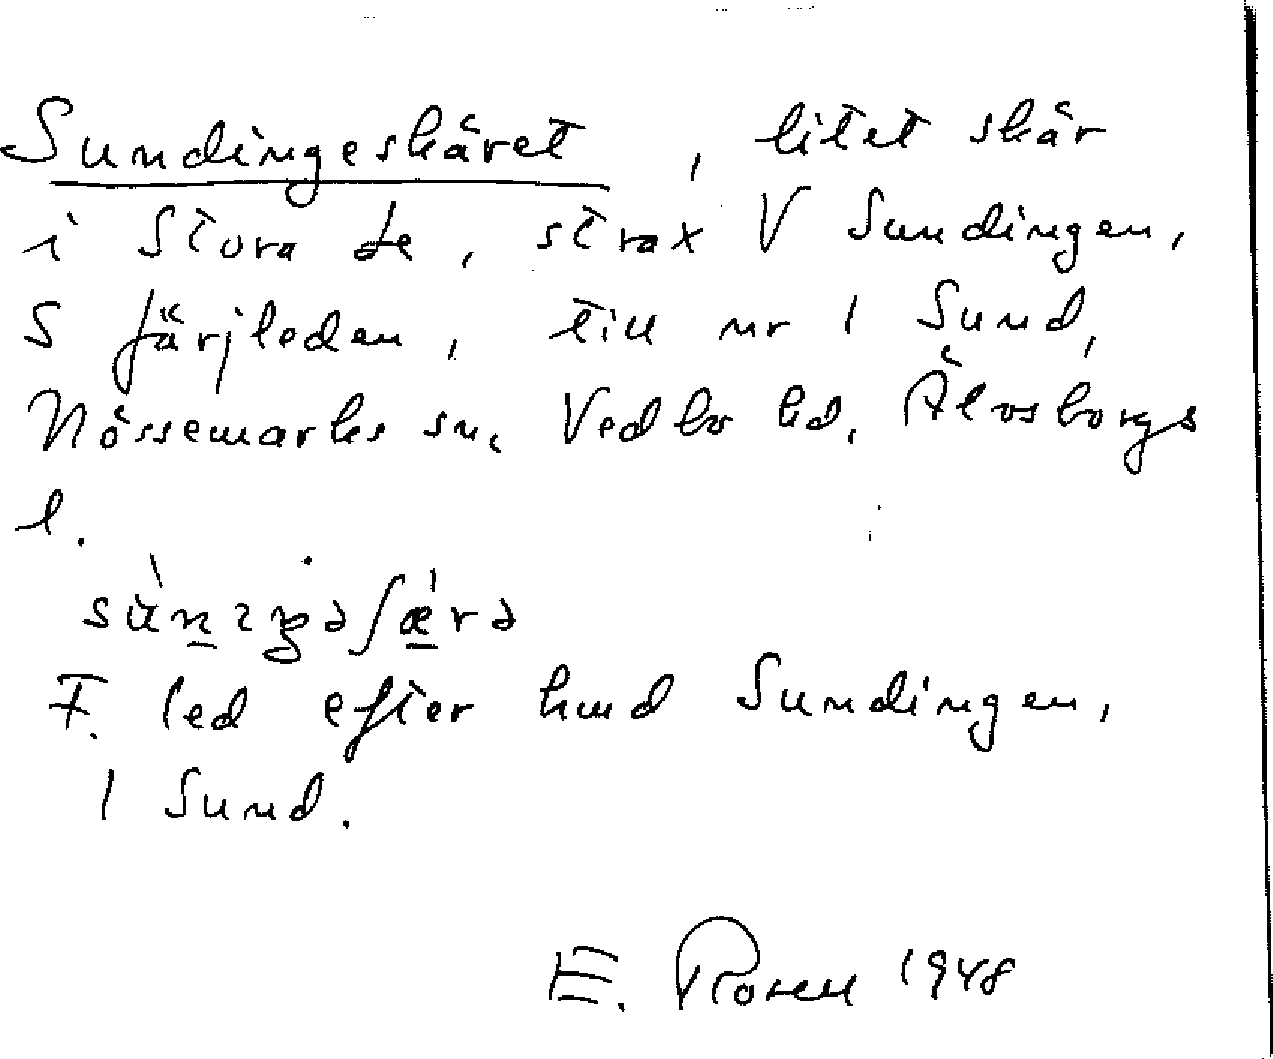 Sundingeskäret, litet skär
i Stora Le, strax V Sundingen,
S färjleden, till nr 1 Sund,
Nössemarks sn, Vedbo hd, Älvsborgs
l.
F. led efter hmd Sundingen,
1 Sund.
E. Rosell 1948